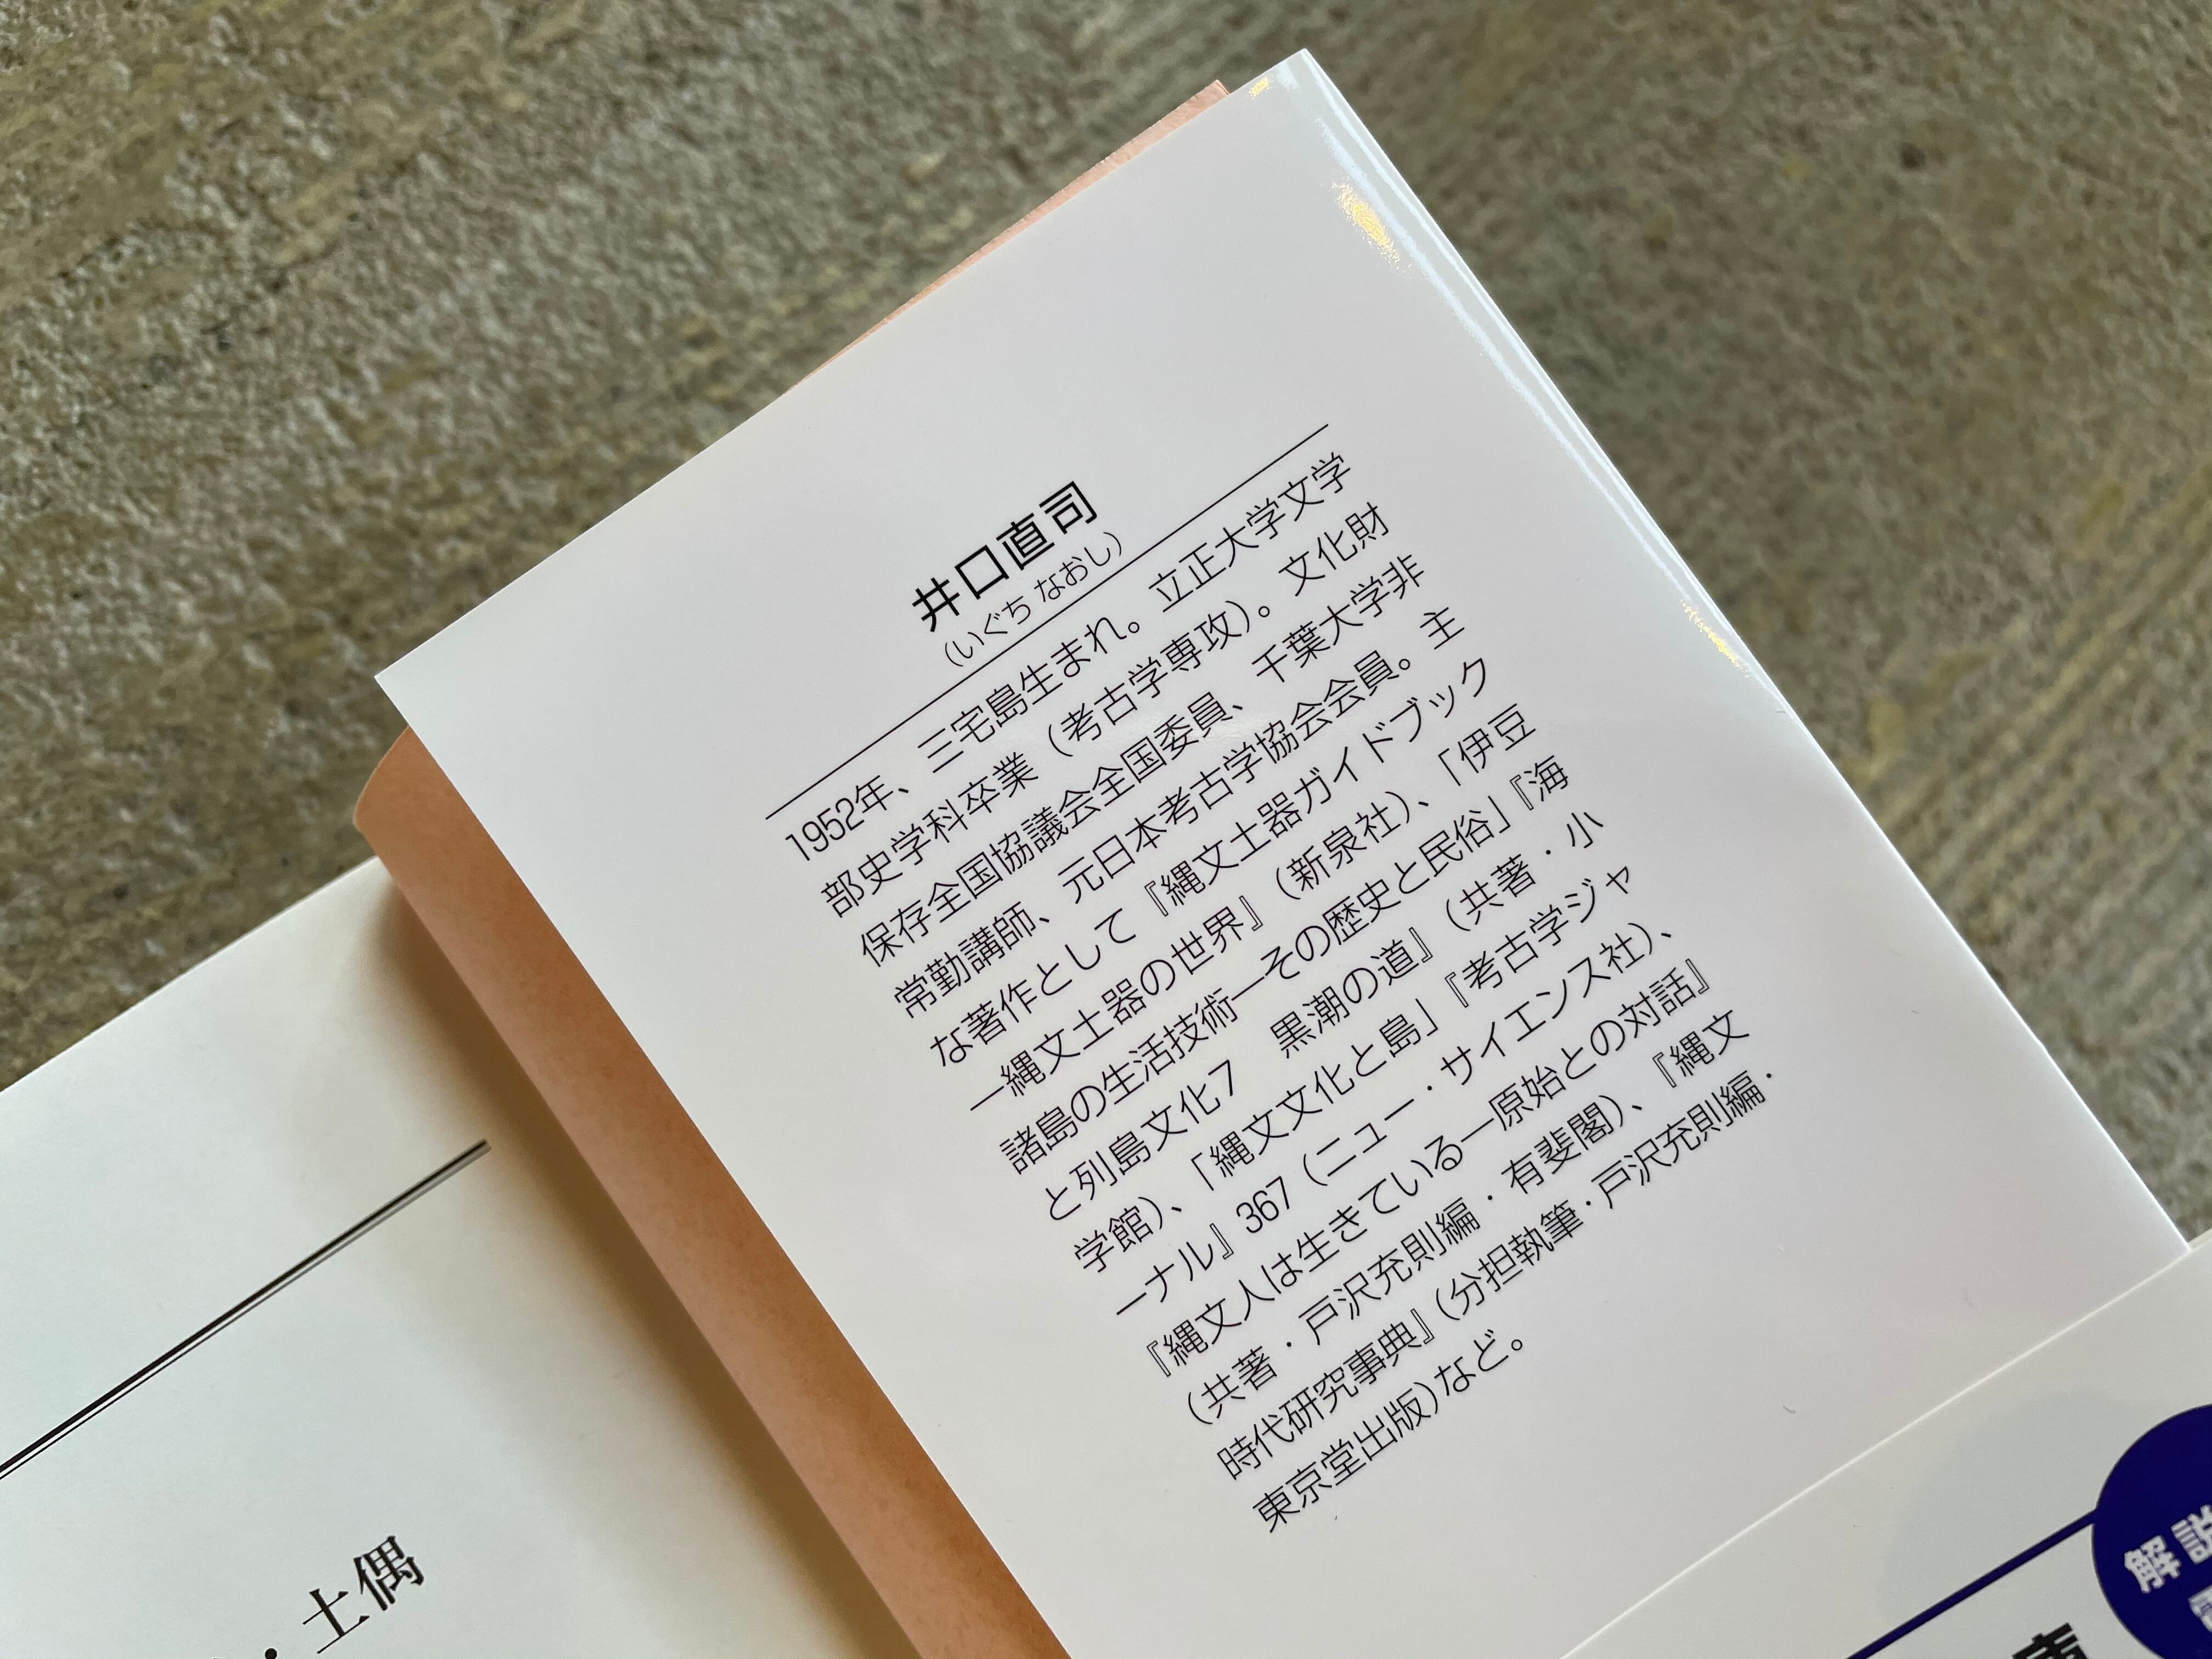 井口直司
(いぐち なおし)
1952年、三宅島生まれ。立正大学文学
部史学科卒業（考古学専攻）。文化財
保存全国協議会全国委員、千葉大学非
常勤講師、元日本考古学協会会員。主
な著作として『縄文土器ガイドブック
―縄文土器の世界』（新泉社）、「伊豆
諸島の生活技術―その歴史と民俗」『海
と列島文化7　黒潮の道』（共著・小
学館）、「縄文文化と島」『考古学ジャ
ーナル』367（ニュー・サイエンス社）、
『縄文人は生きている―原始との対話』
（共著・戸沢充則編・有斐閣）、『縄文
時代研究事典』（分担執筆・戸沢充則編・
東京堂出版）など。
・土偶
解説